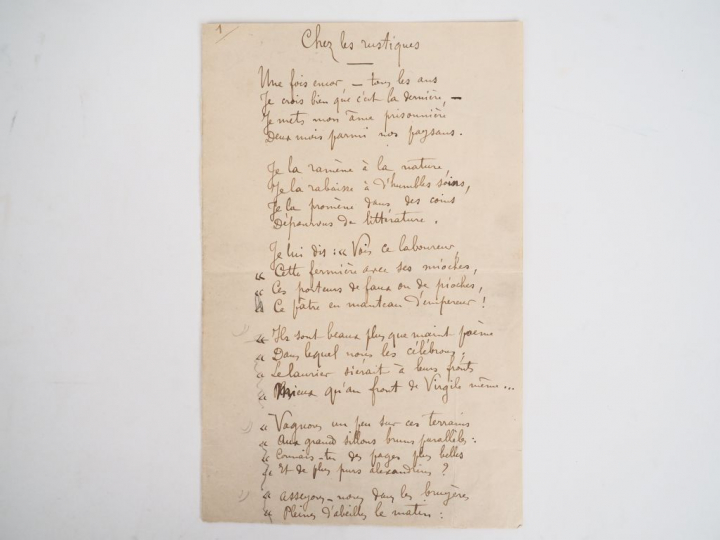 1
Chez les rustiques
Une fois encor — tous les ans
Je crois bien que c'est la dernière, —
Je mets mon âme prisonnière
Deux mois parmi nos paysans.
Je la ramène à la nature
Je la rabaisse à d'humbles soins,
Je la promène dans des coins
Dépourvus de littérature.
Je lui dis : « Vois ce laboureur
« Cette fermière avec ses mioches,
« Ces porteurs de faux ou de pioches,
« Ce pâtre en manteau d'empereur !
« Ils sont beaux plus que maint poème
« Dans lequel nous les célébrons,
« Le laurier siérait à leurs fronts
« Mieux qu'au front de Virgile même...
« Vaguons un peu sur ces terrains
« Aux grand sillons bruns parallèles :
« Connais-tu des pages plus belles
« Et de plus purs alexandrins ?
« Asseyons-nous dans les bruyères
« Pleines d'abeilles le matin :